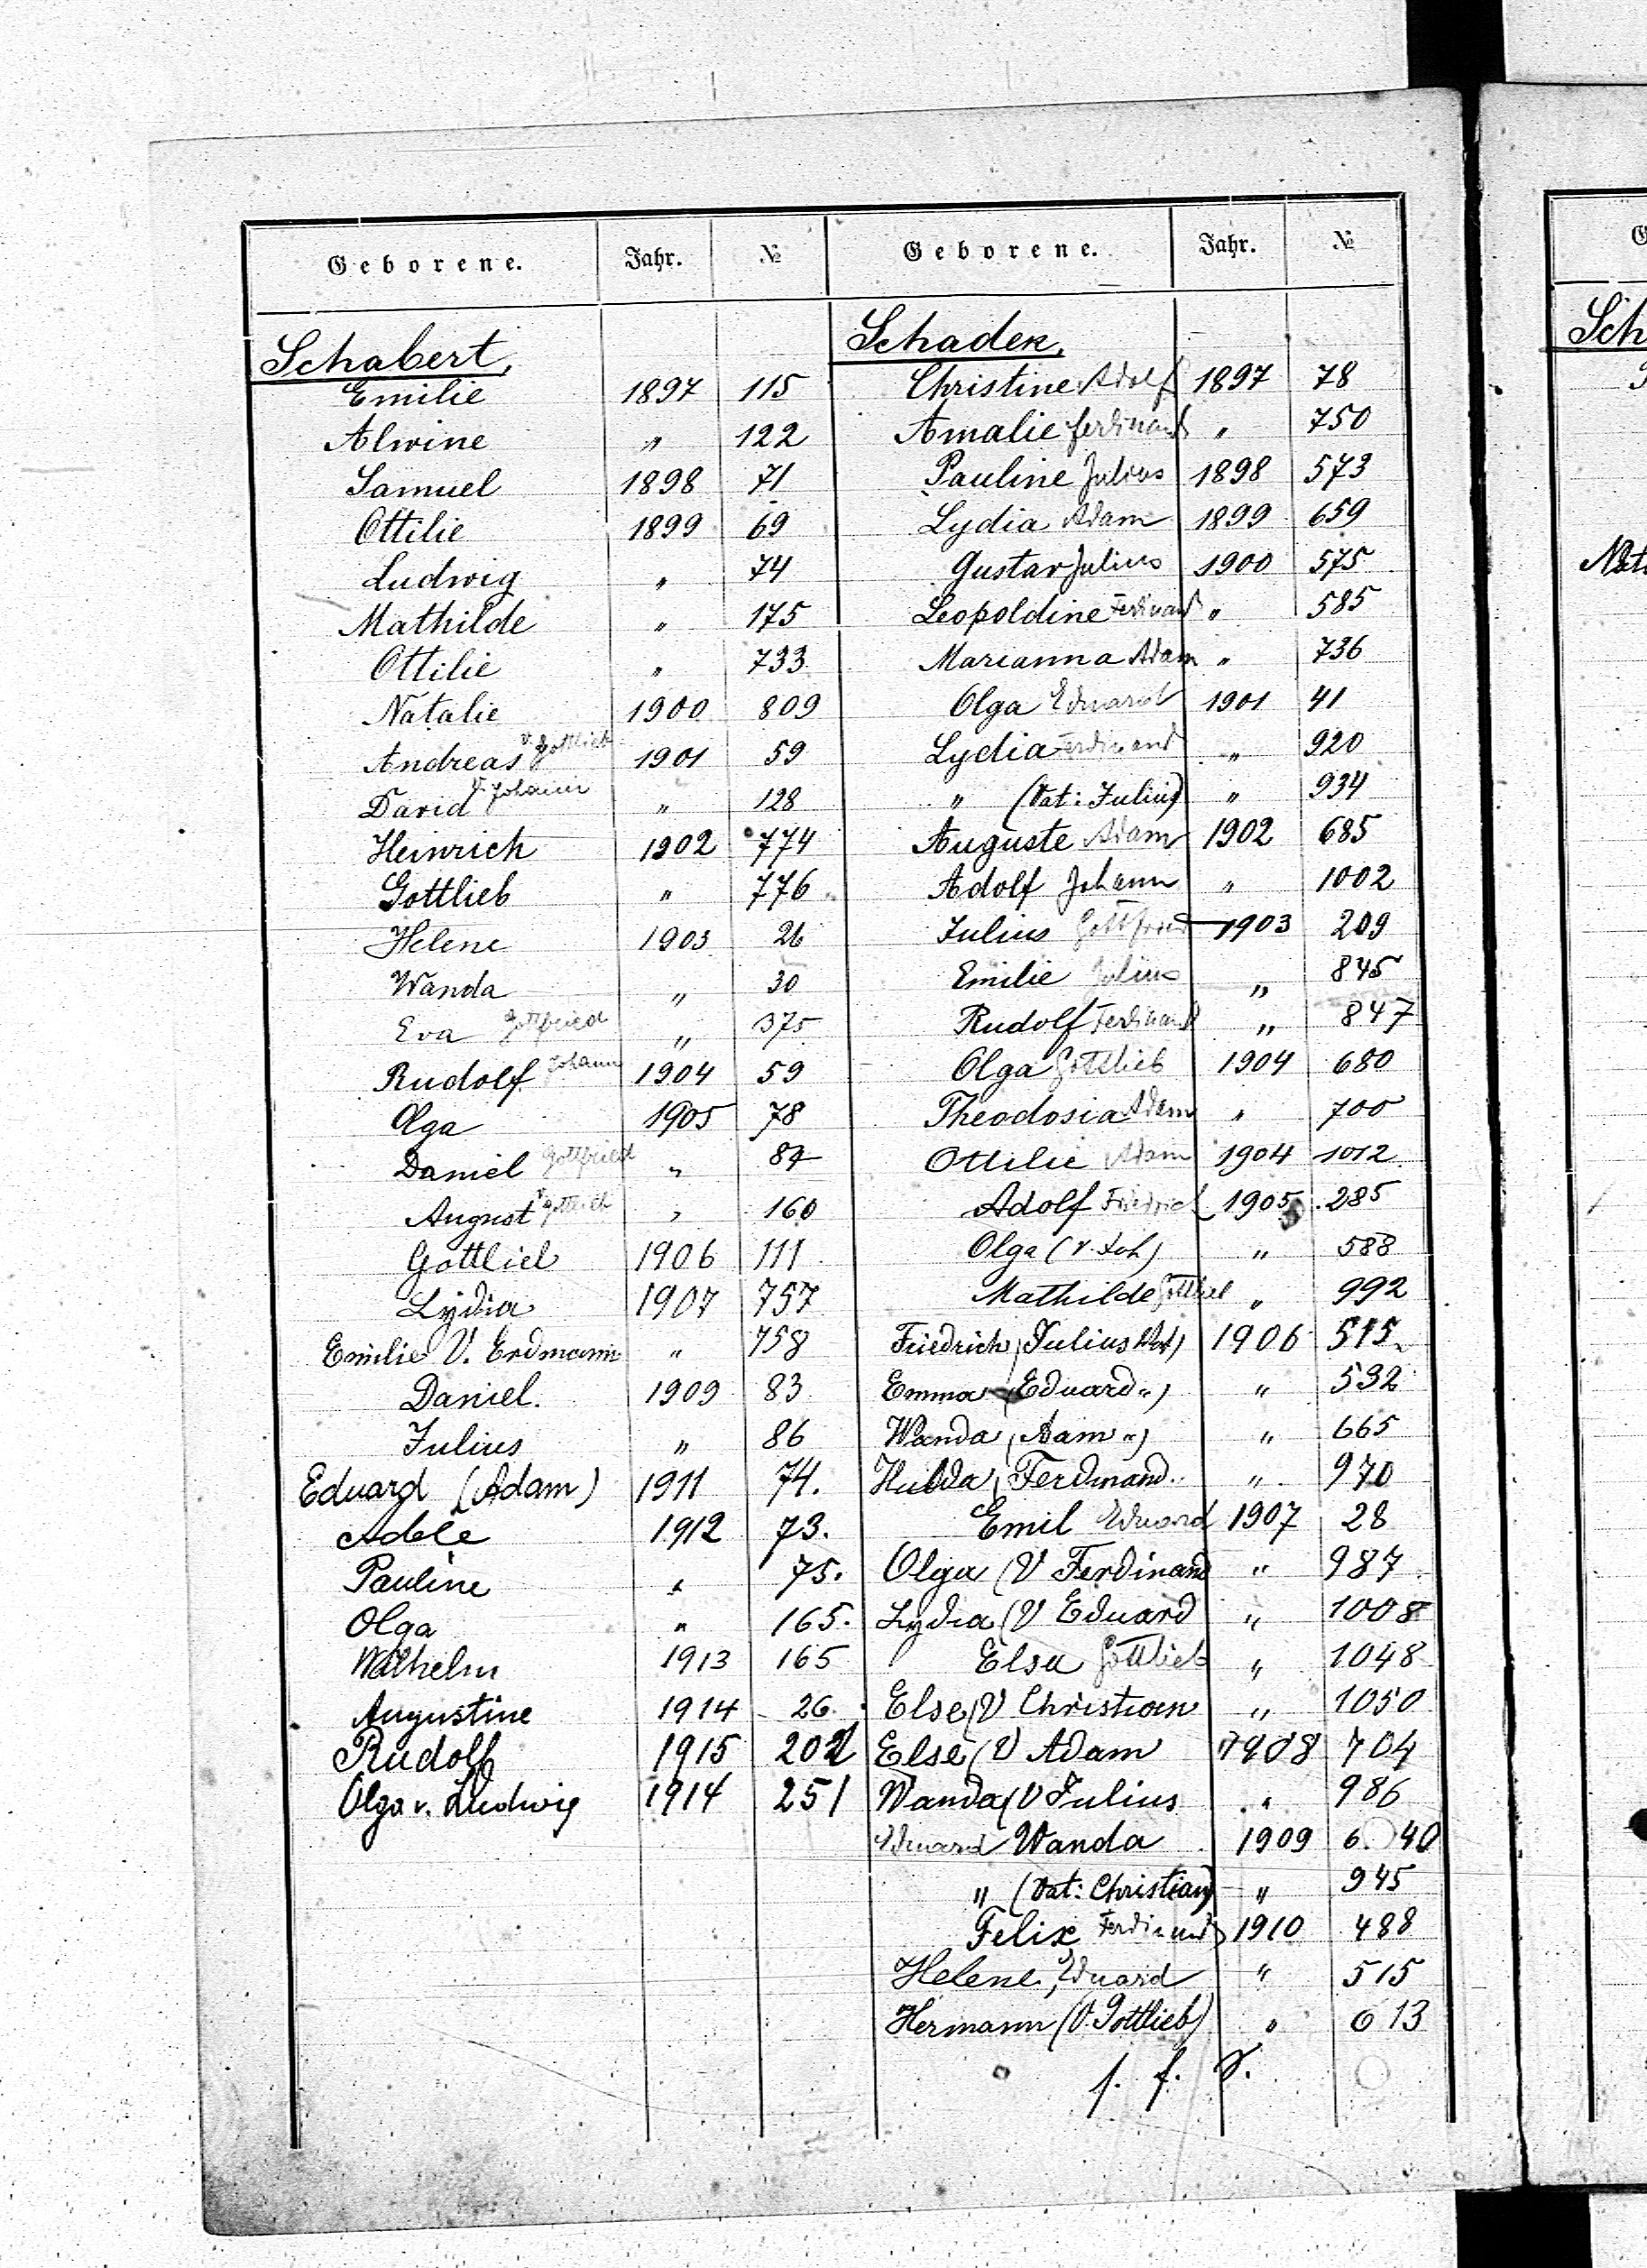 Geborene. Jahr. №
Schabert,
Emilie 1897 115
Alwine " 122
Samuel 1898 71
Ottilie 1899 69
Ludwig " 74
Mathilde " 175
Ottilie " 733
Natalie 1900 809
Andreas v. Gottlieb 1901 59
David V. Johann " 128
Heinrich 1902 774
Gottlieb " 776
Helene 1903 26
Wanda " 30
Eva Gottfried " 375
Rudolf Johann 1904 59
Olga 1905 78
Daniel Gottfried " 84
August v. Gottlieb " 160
Gottlieb 1906 111
Lydia 1907 757
Emilie V. Erdmann " 758
Daniel. 1909 83
Julius " 86
Eduard (Adam) 1911 74.
Adele 1912 73.
Pauline " 75.
Olga " 165.
Wilhelm 1913 165
Augustine 1914 26
Rudolf 1915 202
Olga v. Ludwig 1914 251
Geborene. Jahr. №
Schader,
Christine Adolf 1897 78
Amalie Ferdinand " 750
Pauline Julius 1898 573
Lydia Adam 1899 659
Gustav Julius 1900 575
Leopoldine Ferdinand " 585
Marianna Adam " 736
Olga Eduard 1901 41
Lydia Ferdinand " 920
" (Vat: Julius) " 934
Auguste Adam 1902 685
Adolf Johann " 1002
Julius Gottfried 1903 209
Emilie Julius " 845
Rudolf Ferdinand " 847
Olga Gottlieb 1904 680
Theodosia Adam " 700
Ottilie Adam 1904 1012
Adolf Friedrich 1905 285
Olga (v. Joh) " 588
Mathilde Gottlieb " 992
Friedrich (Julius Vat) 1906 515
Emma (Eduard ") " 532
Wanda (Aam ") " 665
Hulda (Ferdinand " 970
Emil Eduard 1907 28
Olga (V Ferdinand " 987
Lydia (V Eduard " 1008
Elsa Gottlieb " 1048
Else (V Christian " 1050
Else (V Adam 1908 704
Wanda (V Julius " 986
Eduard Wanda 1909 640
" (Vat: Christian) " 945
Felix Ferdinand 1910 488
Helene, Eduard " 515
Hermann (V. Gottlieb) " 613
s. f. S.
Sch